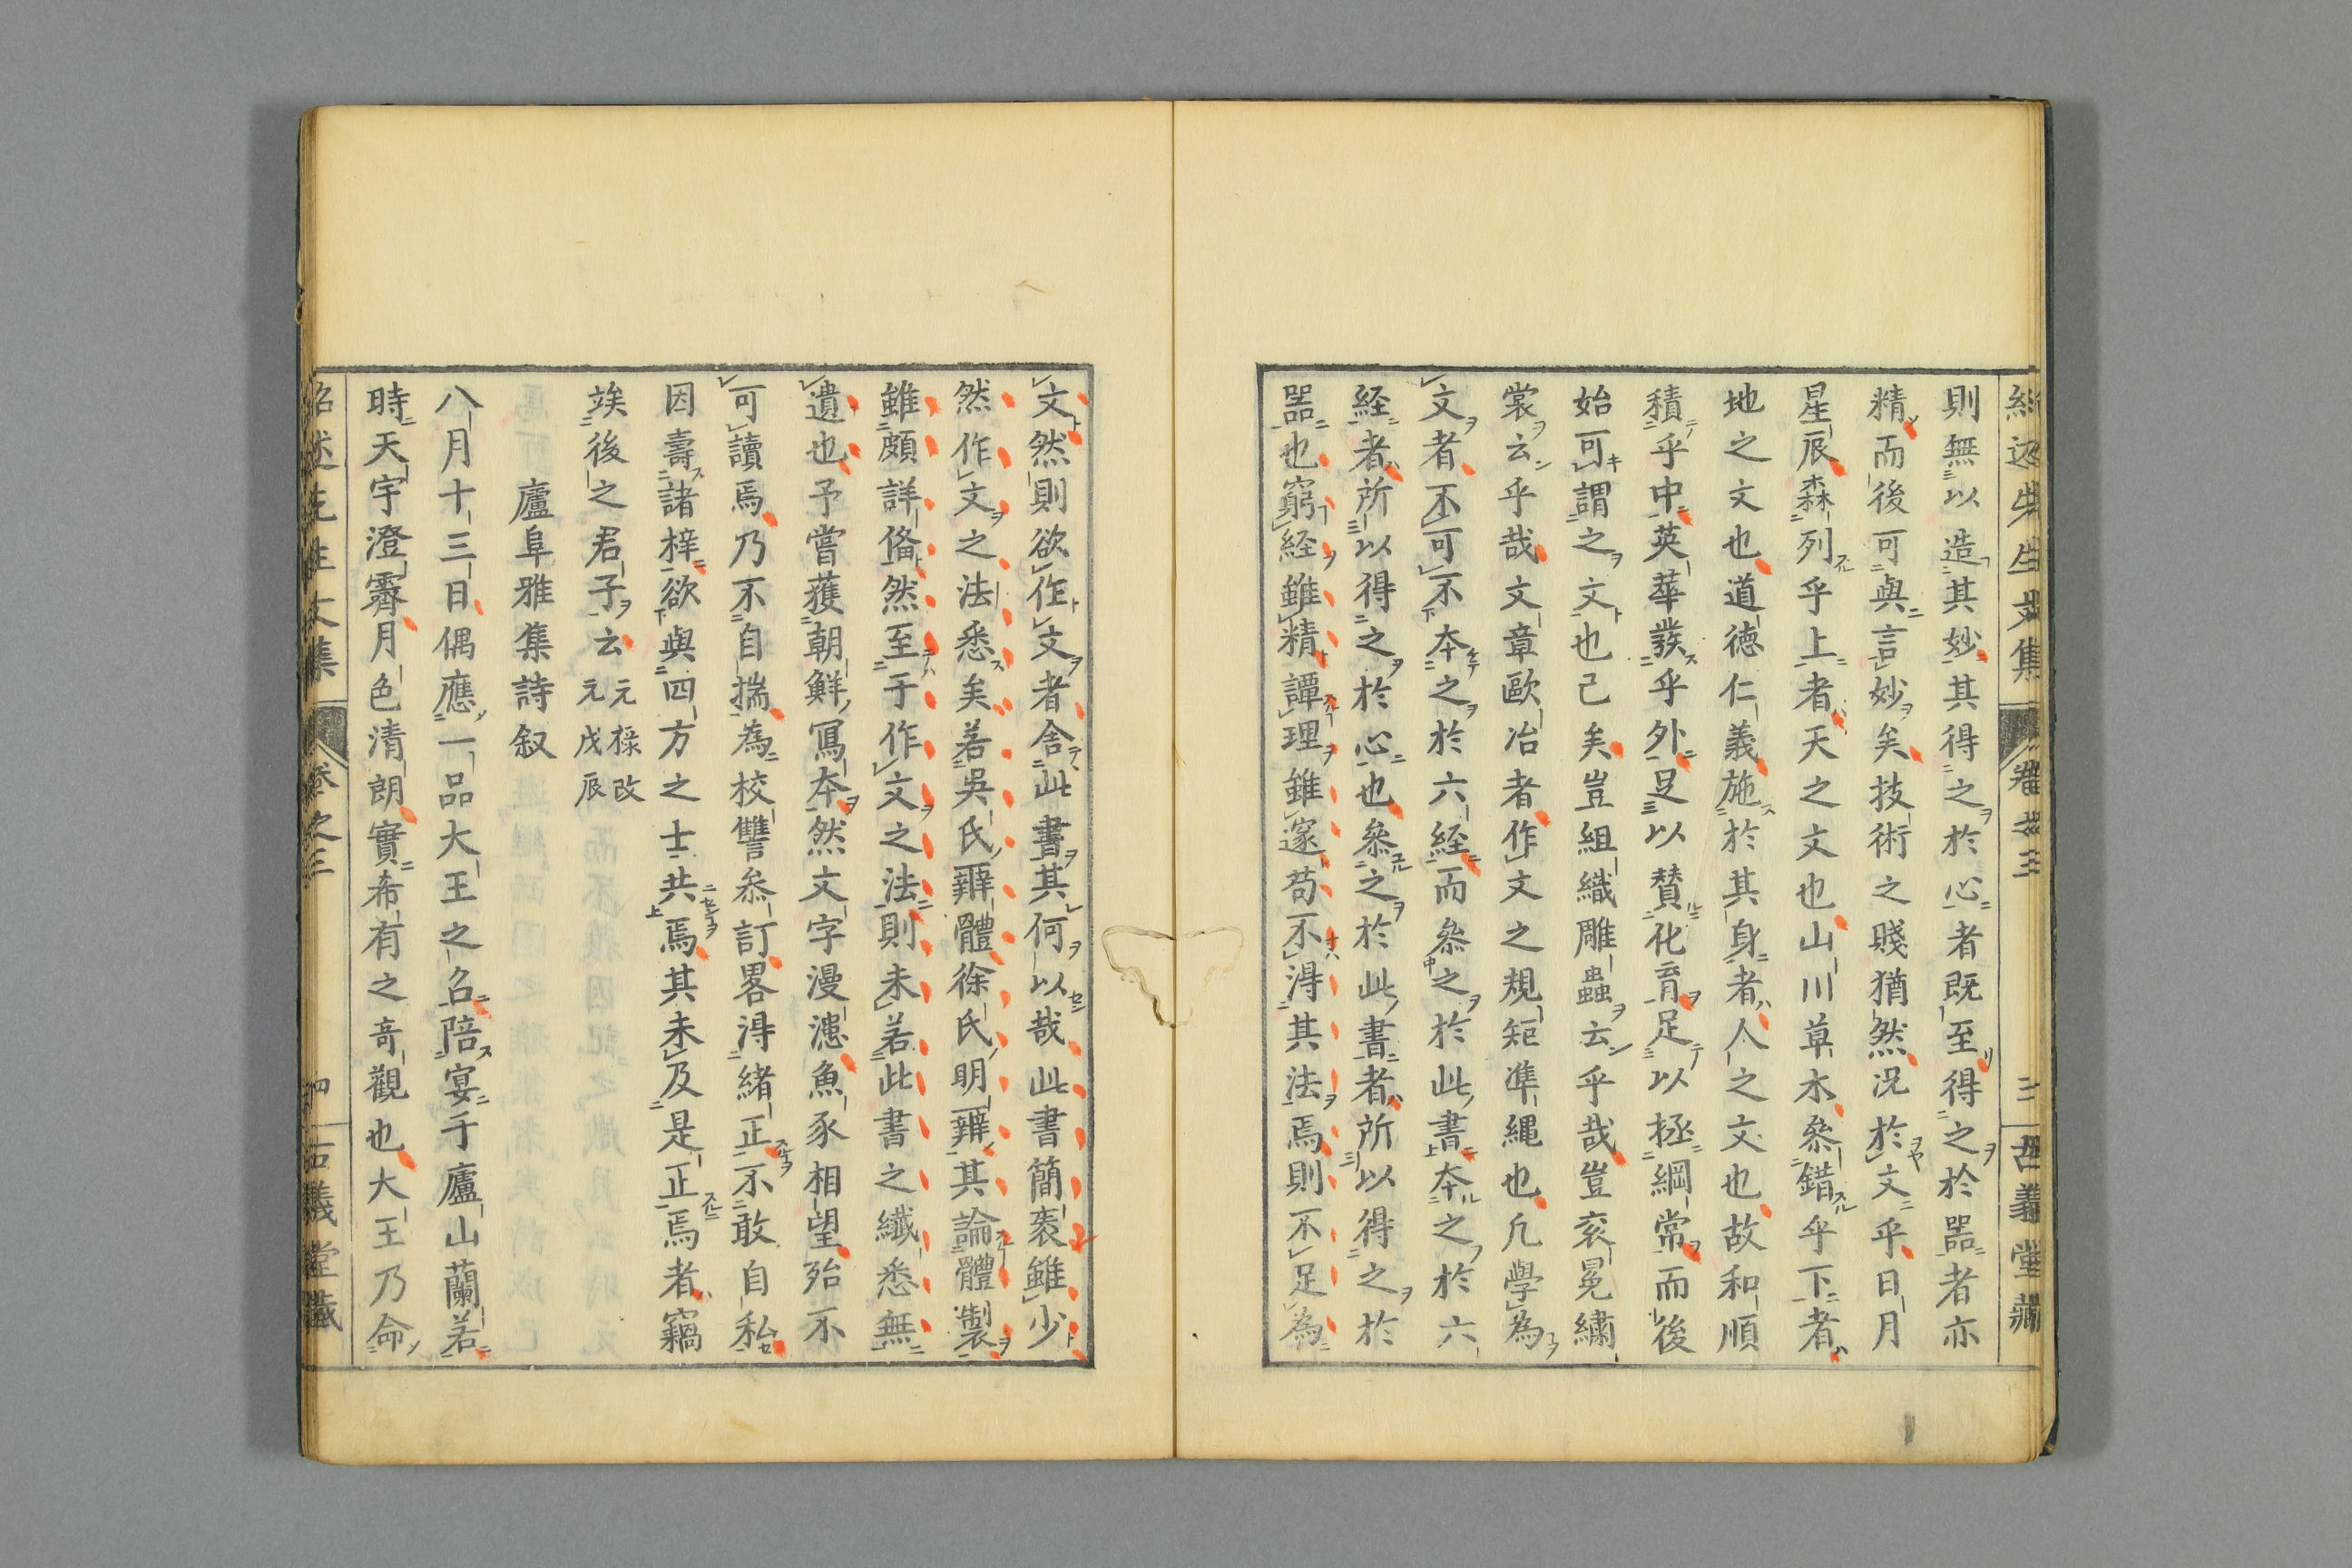 紹述先生文集 卷之三 三 古義堂藏
則無以造其妙其得之於心者既至得之於器者亦
精而後可與言妙矣技術之賤猶然况於文乎日月
星辰森列乎上者天之文也山川草木叅錯乎下者
地之文也道徳仁義施於其身者人之文也故和順
積乎中英華發乎外足以賛化育足以極綱常而後
始可謂之文也已矣豈組織雕蟲云乎哉豈衮冕繡
裳云乎哉文章歐冶者作文之規矩凖繩也凢學為
文者不可不本之於六經而叅之於此書本之於六
経者所以得之於心也叅之於此書者所以得之於
噐也窮経雖精譚理雖邃苟不淂其法焉則不足為
文然則欲作文者舍此書其何以哉此書簡袠雖少
然作文之法悉矣若吳氏辯體徐氏明辯其論體製
雖頗詳俻然至于作文之法則未若此書之纎悉無
遺也予嘗獲朝鮮寫本然文字漫漶魚豕相望殆不
可讀焉乃不自揣為校讐叅訂畧淂緒正不敢自私
因壽諸梓欲與四方之士共焉其未及是正焉者竊
竢後之君子云 元禄改元戊辰
廬阜雅集詩叙
八月十三日偶應一品大王之召陪宴于廬山蘭若
時天宇澄霽月色清朗實希有之竒觀也大王乃命
紹述先生文集 卷之三 四 古義堂藏